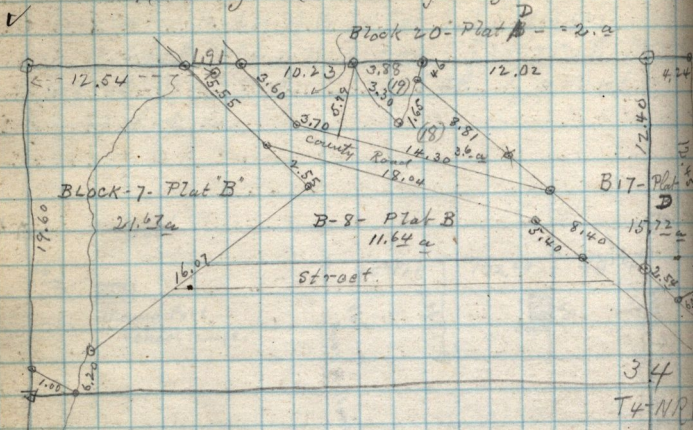 Block 20 - Plat D - = 2.a
12.54
1.91
10.23
3.88
46
12.02
4.24
5.55
3.60
5.29
3.30
(19)
1.65
(18)
8.81
12.40
3.70
County Road
14.30
3.6.a
18.04
2.55
Block - 7 - Plat "B"
21.67 a
B-8 - Plat B
11.64 a
B 17 - Plat
D
15.72 a
19.60
5.40
8.40
2.54
16.07
Street
6.20
1.00
34
T4-NR